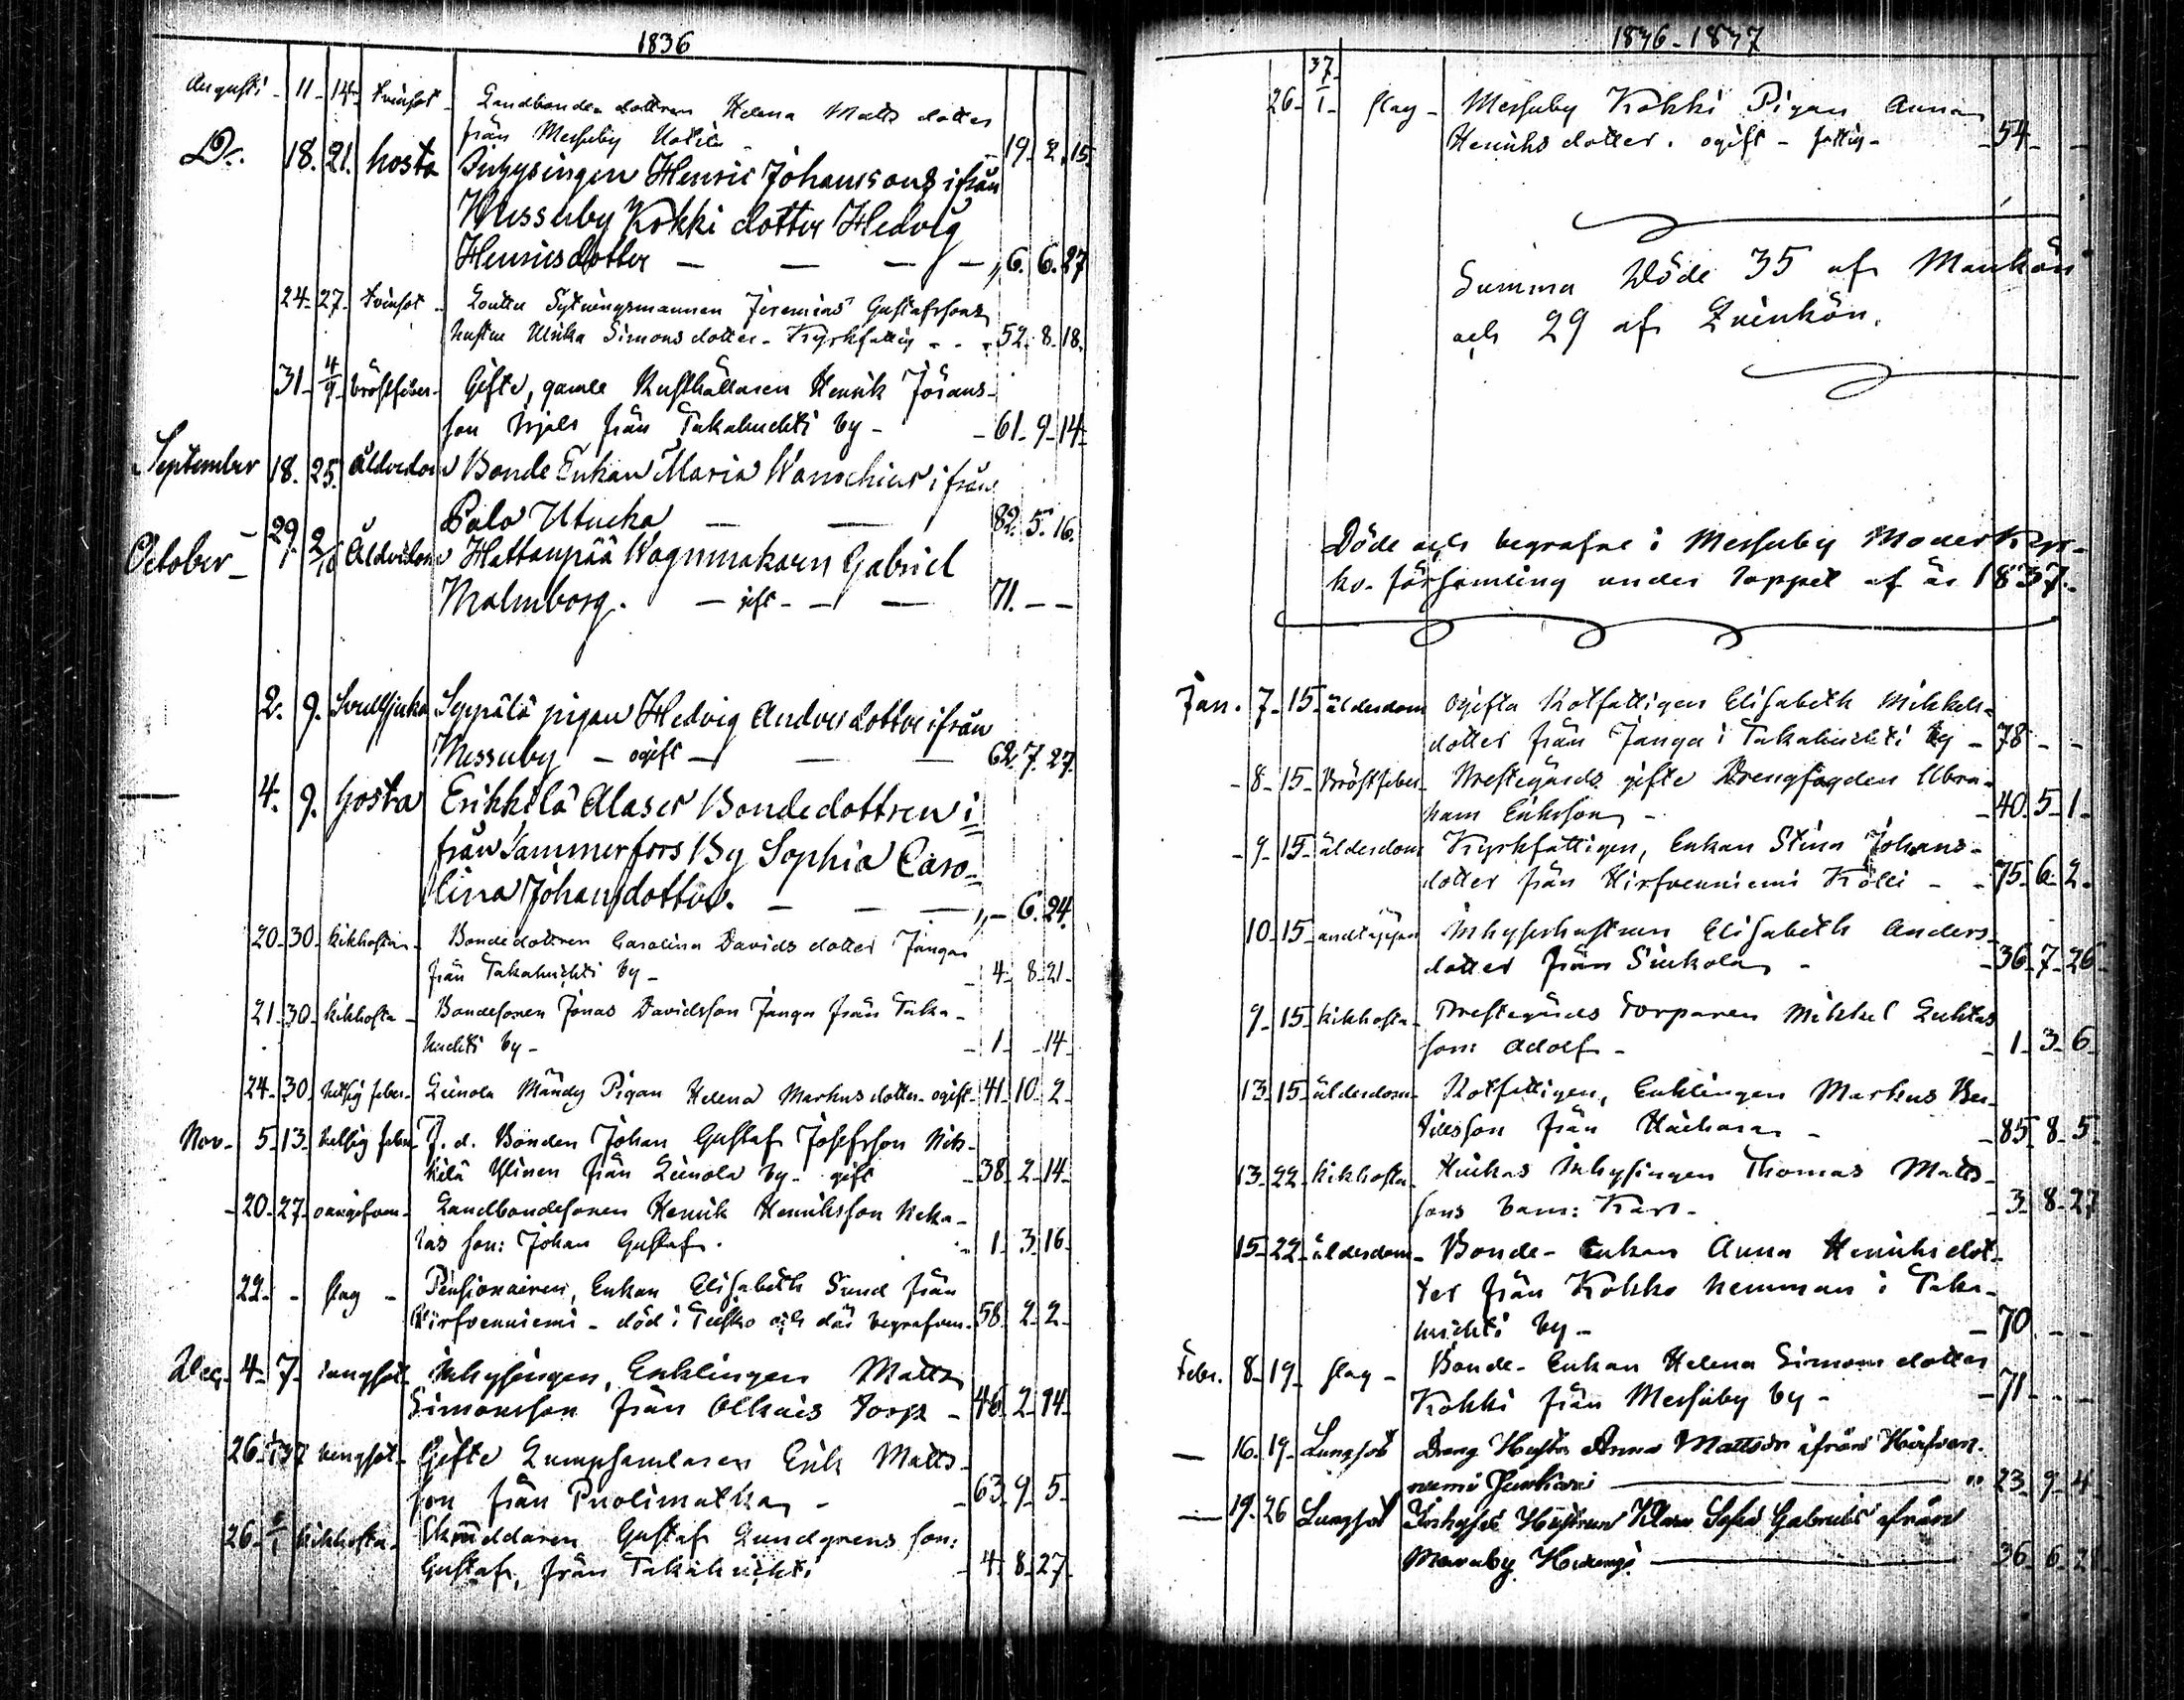 1836
Augusti - 11 - 14 - tvinsot - Landbonde dottren Helena Matts dotter
från Messuby - 19. 2. 15.
Do. 18. 21. hosta Inhysingen Henric Johanssons ifrån
Messuby Kokki dotter Hedvig
Henricsdotter - - - - 6. 6. 27
24 - 27 - tvinsot - Sytningsmannen Jeremias Gustafssons
hustru Ulrika Simonsdotter - Kyrkfattig - - 52. 8. 18.
31 - 4/9 bröstfeber - Gifte, gamle Rusthållaren Henrik Jörans-
son från Takahuchti by - - 61 - 9 - 14 -
September 18. 25. Ålderdom Bonde Enkan Maria ifrån
Palo - - 82. 5. 16.
October - 29. 2/10 Ålderdom Hattanpää Wagnmakaren Gabriel
Malmborg. - gift - - - 71. - -
2. 9. Seppälä pigan Hedvig Anders dotter ifrån
Messuby - ogift - - - 62. 7. 27.
4. 9. hosta Erikkilä Alaser Bondedottren i
från Tammerfors By Sophia Caro-
lina Johansdotter. - - - - 6. 24.
20 - 30 - kikhosta - Bondedottren Carolina Davidsdotter Janga
från Takahuchti by - - 4 - 8 - 21 -
21 - 30 - kikhosta - Bondesonen Jonas Davidsson Janga från Taka-
huchti by - - 1 - - 14 -
24 - 30 - hetsig feber - Leinola Mändy Pigan Helena Markusdotter - ogift - 41 - 10 - 2 -
Nov - 5 - 13 - hetsig feber f. d. Bonden Johan Gustaf Josefsson Nik-
kilä Ylinen från Leinola by - gift - 38 - 2 - 14 -
- 20 - 27 - oangifven - Landbondesonen Henrik Henriksson
son: Johan Gustaf - - 1 - 3 - 16 -
22 - - slag - Pensionairen, Enkan Elisabeth Sund från
Hirfvenniemi - död i och där begrafven - 58 - 2 - 2 -
Dec. 4 - 7 - lungsot - Inhysingen, Enklingen Matts
Simonsson från Olkais torp - 46 - 2 - 14 -
26 - 1/1 37 lungsot - Gifte Lumpsamlaren Erik Matts-
son från Puolimatka - - 63 - 9 - 5 -
26 - 8/1 kikhosta - Skräddaren Gustaf Lundgrens son:
Gustaf, från Takahuchti - 4 - 8 - 27 -
1836 - 1837
37
26 - 1 - slag - Messuby Kokki Pigan Anna
Henriksdotter. ogift - fattig - - 54 - -
Summa Döde 35 af Mankön
och 29 af Qvinkön.
Döde och begrafne i Messuby Moderkyr-
ko-församling under loppet af år 1837.
Jan. 7 - 15 - ålderdom Ogifta Rotfattigen Elisabeth Mikkels-
dotter från Janga i Takahuchti by - 78 - -
- 8 - 15 - Bröstfeber Prestegårds gifte Drengfogden Abra-
ham Eriksson - - 40 - 5 - 1 -
- 9 - 15 - ålderdom Kyrkfattigen, Enkan Stina Johans-
dotter från Hirfvenniemi Kölli - - 75 - 6 - 2 -
10 - 15 - andtäppa Inhyseshustrun Elisabeth Anders-
dotter från Siukola - - 36 - 7 - 26 -
9 - 15 - kikhosta - Prestegårds torparen Mikkel Luhtas
son: Adolf - - 1 - 3 - 6 -
13 - 15 - ålderdom - Rotfattigen, Enklingen Markus Ber-
tilsson från Kaihara - - 85 - 8 - 5 -
13 - 22 - kikhosta - Inhysingen Thomas Matts-
sons barn: Karl - - 3 - 8 - 27
15 - 22 - ålderdom - Bonde-Enkan Anna Henriksdot-
ter från Kokko hemman i Taka-
huchti by - - 70 - -
Febr. 8 - 19 - slag - Bonde-Enkan Helena Simonsdotter
Kokki från Messuby by - - 71 - -
- 16 - 19 - Lungsot Dreng Hustru Anna Mattsdr ifrån Hirfven-
niemi 23 - 9 - 4
- 19 - 26 Lungsot Inhyses Hustrun Klara Sofia Gabriels ifrån
Messuby 36 6